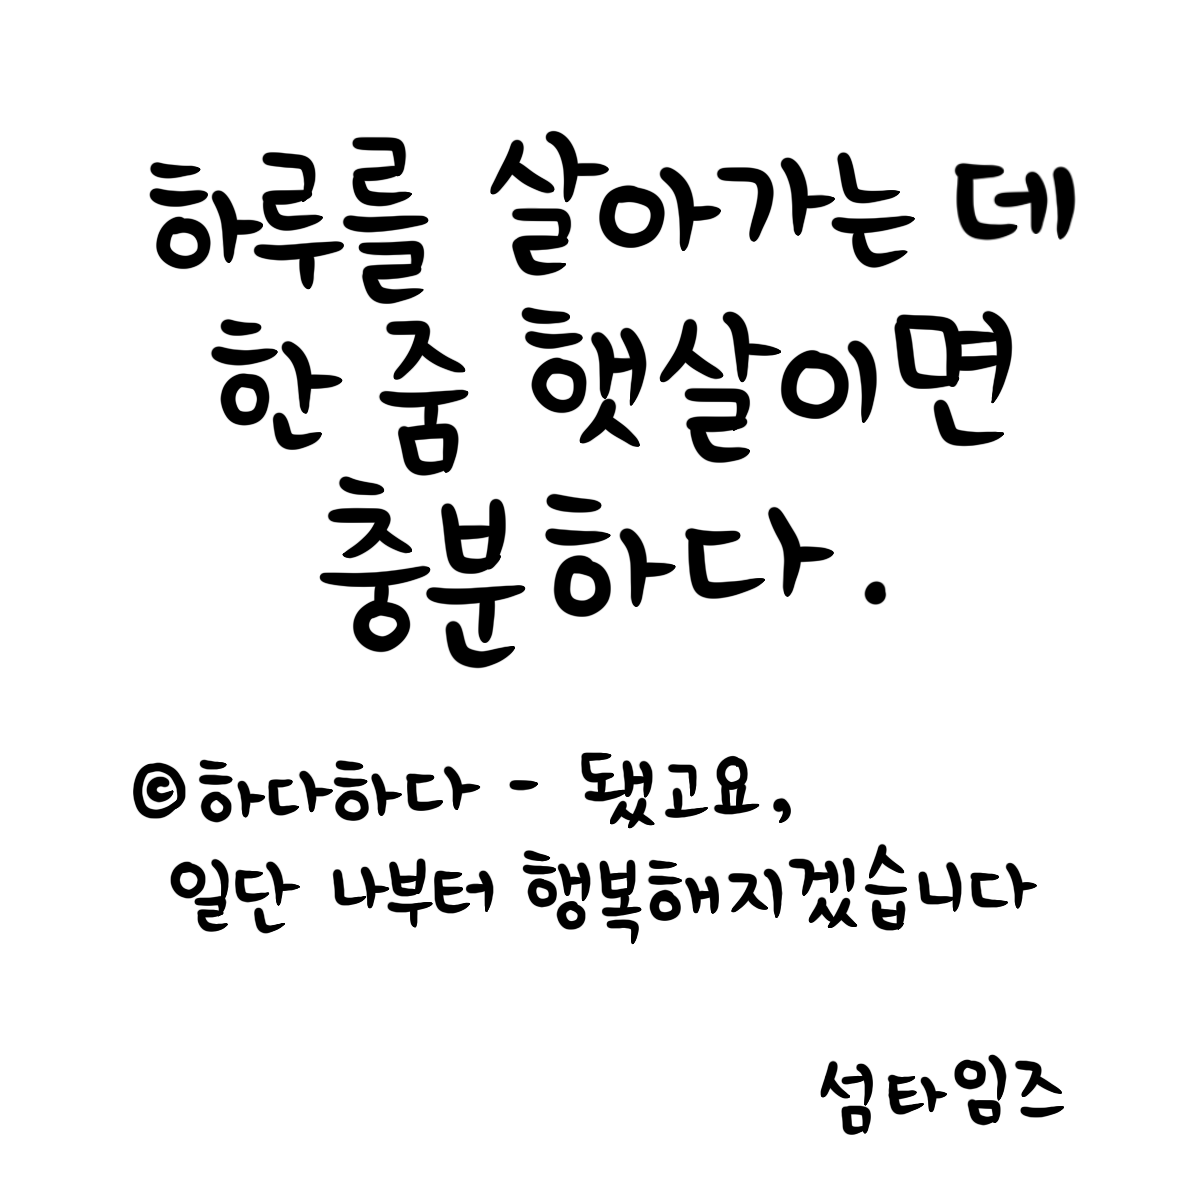 하루를 살아가는 데
한 줌 햇살이면
충분하다.
©하다하다 - 됐고요,
일단 나부터 행복해지겠습니다
섬타임즈